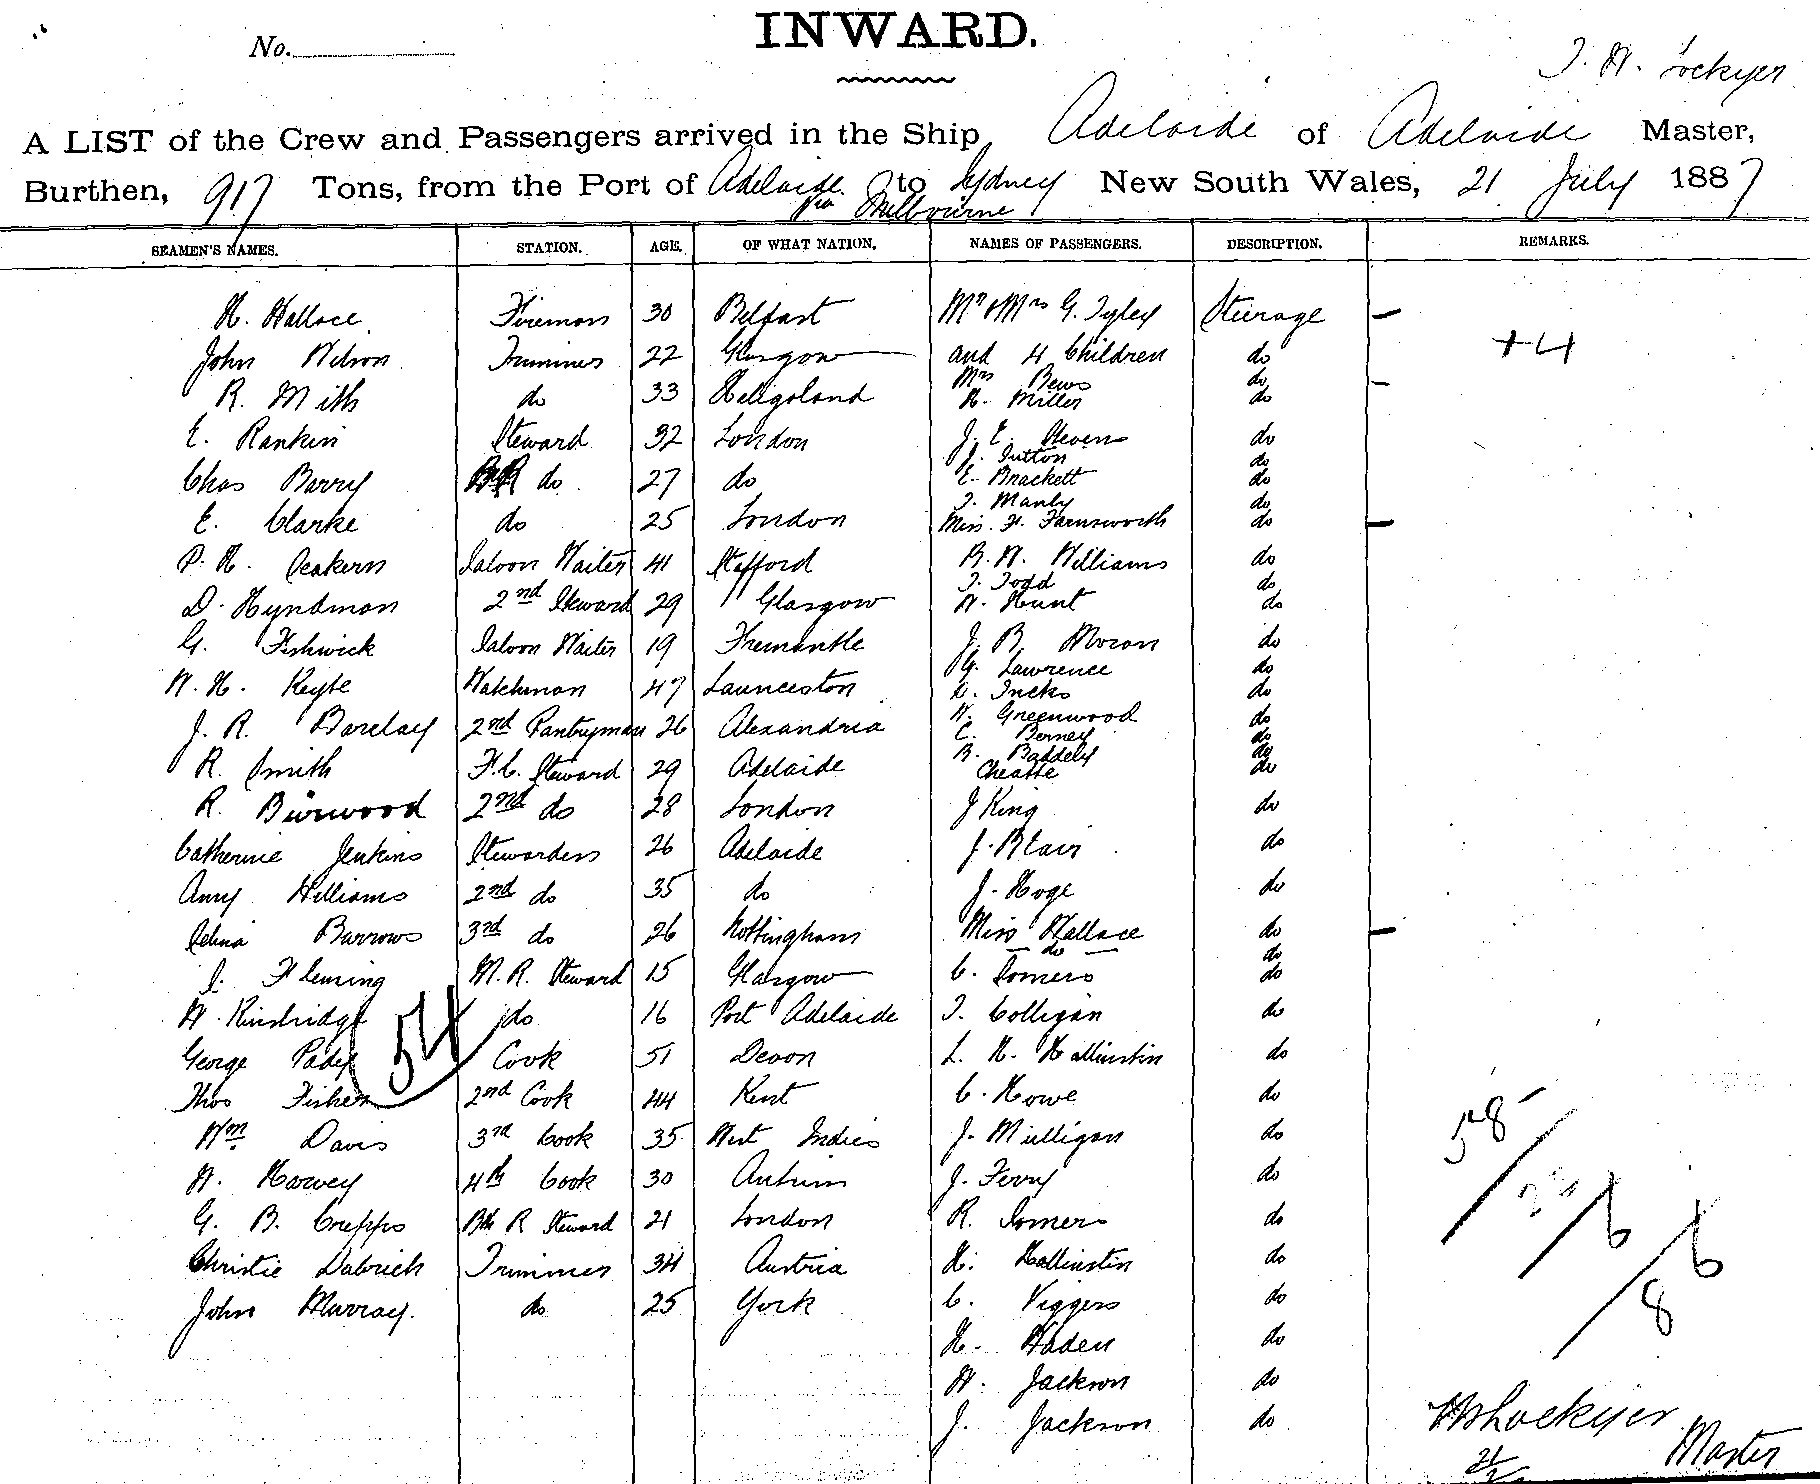 INWARD.
No.
Lockyer
A LIST of the Crew and Passengers arrived in the Ship Adelaide of Adelaide Master,
Burthen, 917 Tons, from the Port of Adelaide to Sydney New South Wales, 21 July 1887
via Melbourne
SEAMEN'S NAMES. STATION. AGE. OF WHAT NATION. NAMES OF PASSENGERS. DESCRIPTION. REMARKS.
H. Wallace Fireman 30 Belfast Mr & Mrs G. Tyley Steerage
+4
John Nelson Trimmer 22 Glasgow and 4 Children do
Mrs Bews do
R. Mith do 33 Heligoland H. Miller do
E. Rankin Steward 32 London J. E. Stevens do
J. Sutton do
Chas Barry B R do 27 do E. Brackett do
T. Manly do
E. Clarke do 25 London Miss F. Farnsworth do
P. H. Deakern Saloon Waiter 41 Stafford B. W. Williams do
T. Todd do
D. Hyndman 2nd Steward 29 Glasgow W. Hunt do
G. Fishwick Saloon Waiter 19 Fremantle J. B. Moran do
G. Lawrence do
W. H. Keyte Watchman 47 Launceston Incks do
W. Greenwood do
J. R. Barclay 2nd Pantryman 26 Alexandria C. Berney do
B. Baddely do
R. Smith F.C. Steward 29 Adelaide Cheatte do
R. Burwood 2nd do 28 London J King do
Catherine Jenkins Stewardess 26 Adelaide J. Blair do
Amy Williams 2nd do 35 do J. Hoge do
Selina Burrows 3rd do 26 Nottingham Miss Wallace do
do do
J. Fleming M. R. Steward 15 Glasgow C. Somers do
W. Kinsridge do 16 Port Adelaide T. Colligan do
54
George Pady Cook 51 Devon L. H. Hallinstin do
Thos Fisher 2nd Cook 44 Kent C. Howe do
Wm Davis 3rd Cook 35 West Indies J. Mulligan do
58
W. Harvey 4th Cook 30 Antrim J. Ferry do
G. B. Crepps Bth R Steward 21 London R. Somers do
6
6
Christie Dabrich Trimmer 34 Austria H. Hallinstin do
8
John Murray. do 25 York C. Viggers do
H. Haden do
W. Jackson do
J. Jackson do
Lockyer
Master